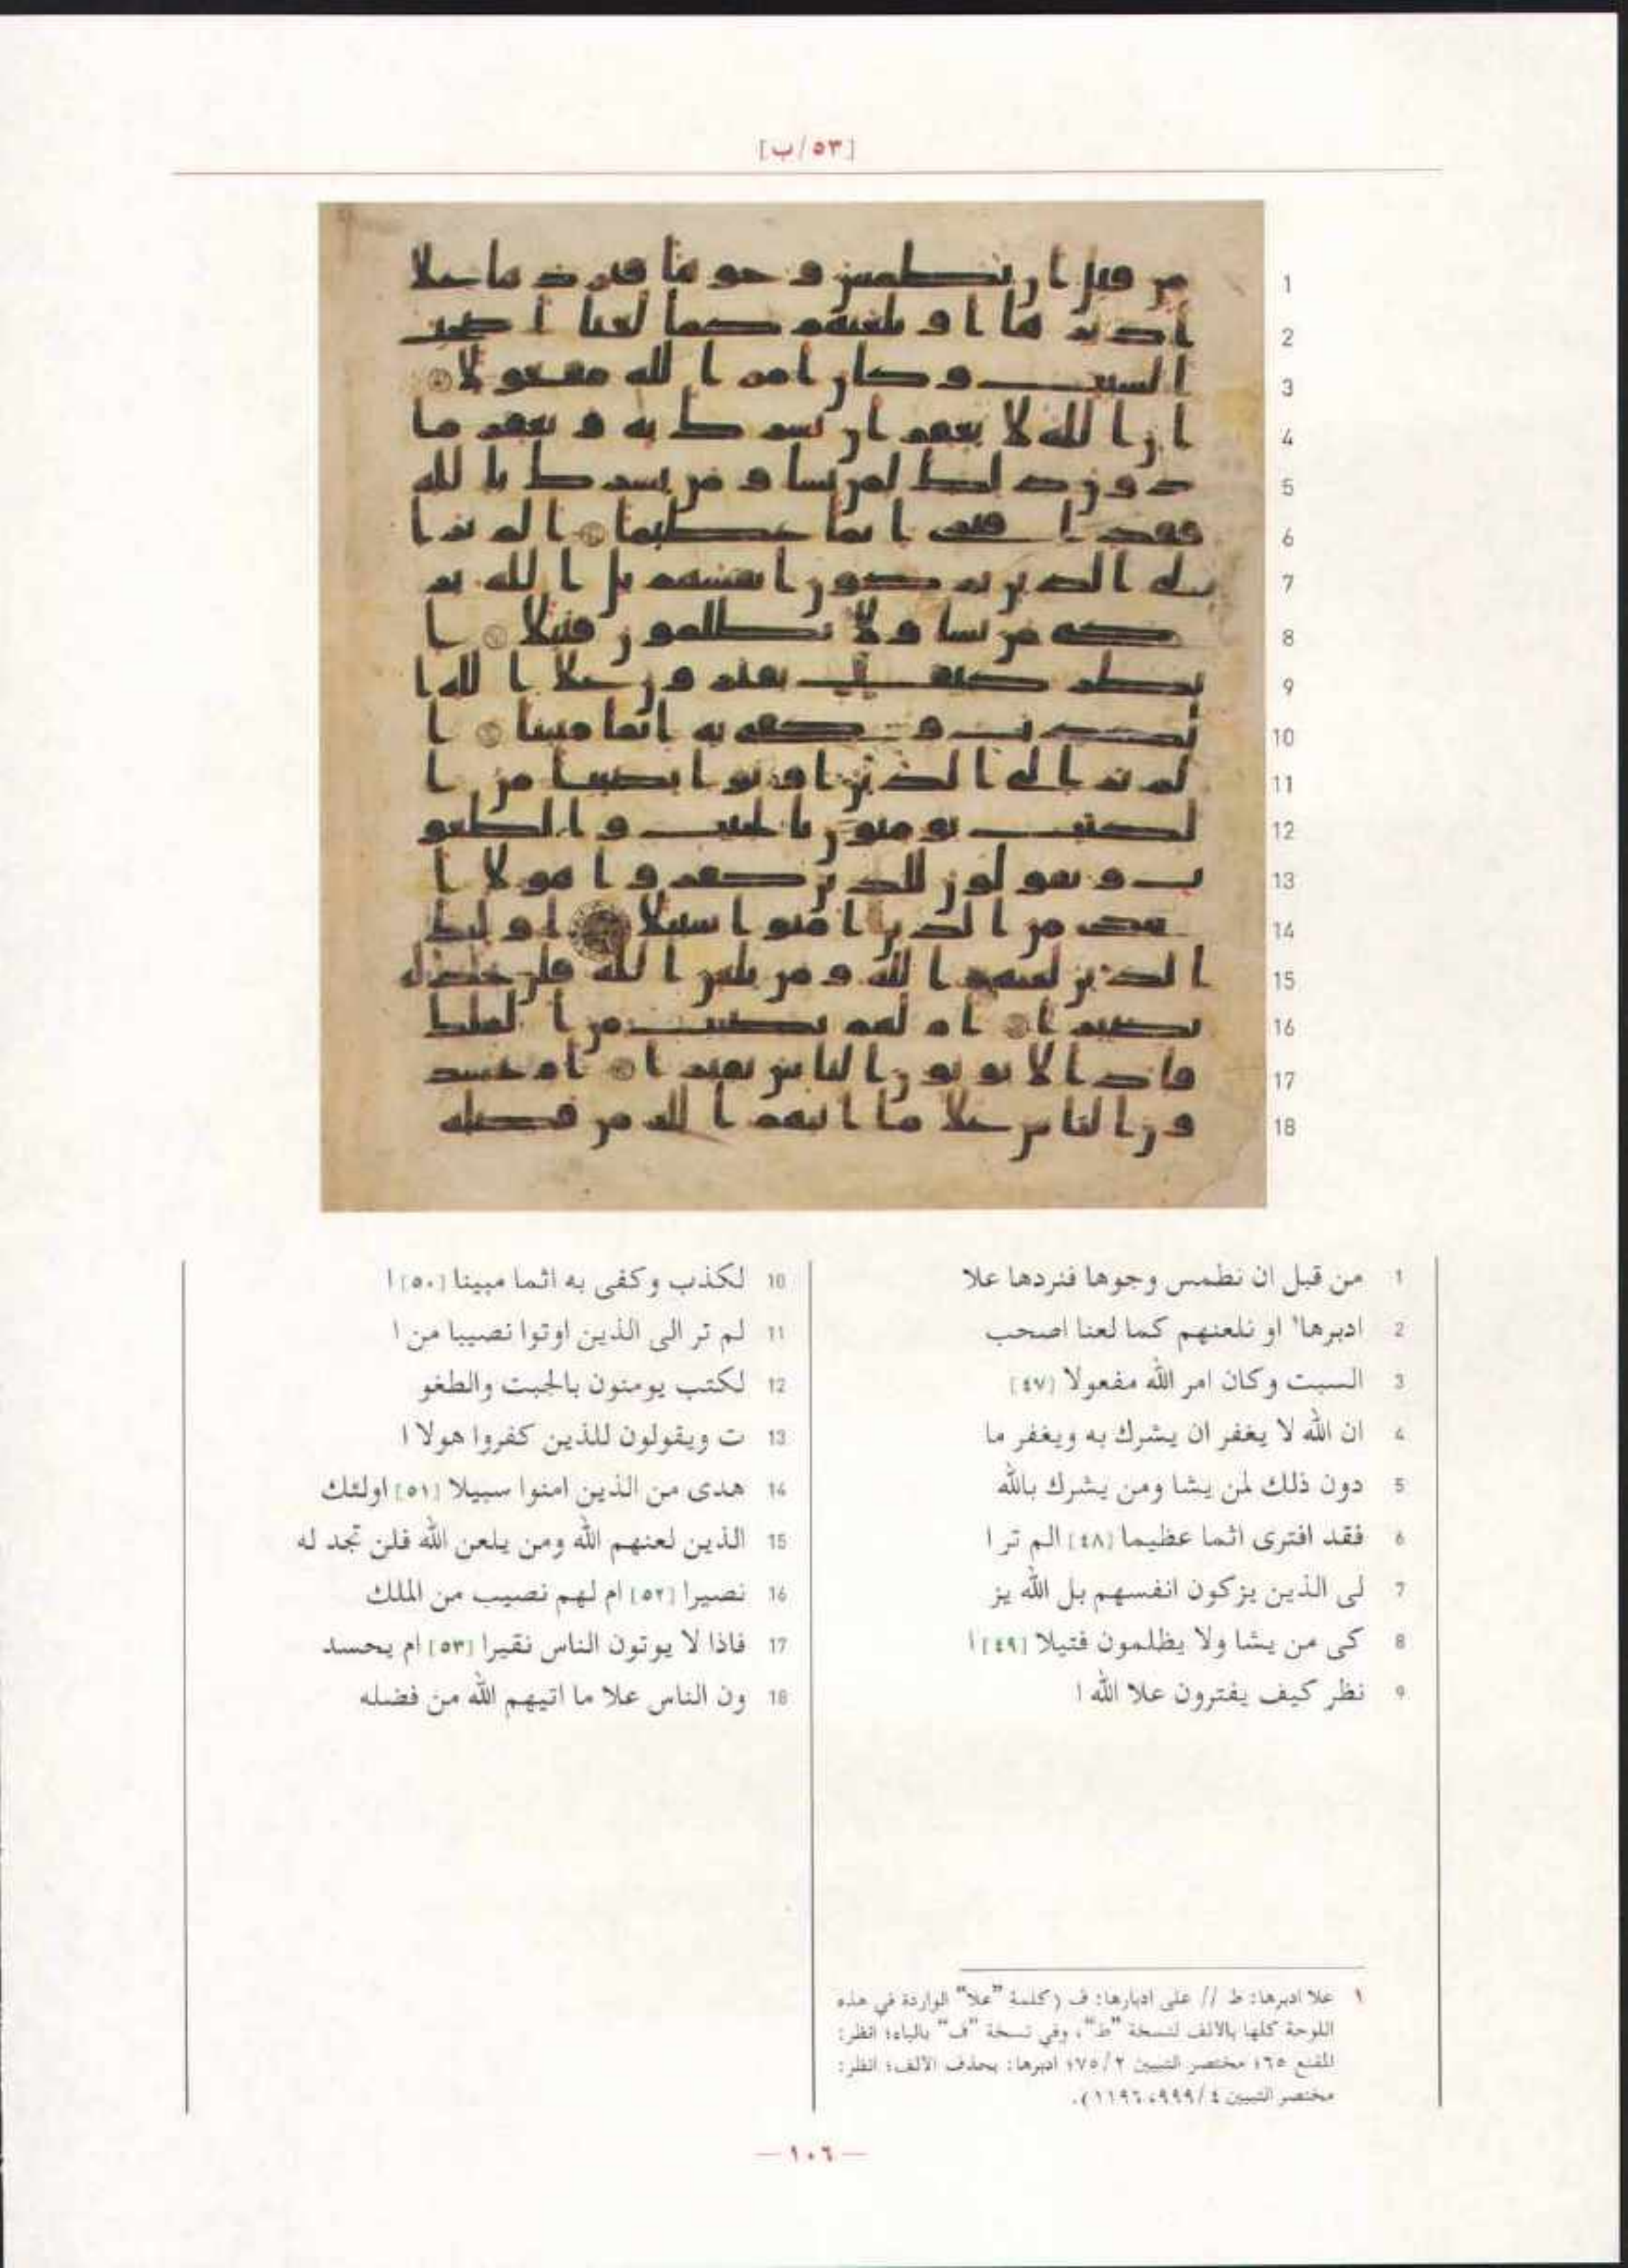 [٥٣/ب]
1 من قبل ان نطمس وجوها فنردها علا
2 ادبرها' او نلعنهم كما لعنا اصحب
3 السبت وكان امر الله مفعولا [٤٧]
4 ان الله لا يغفر ان يشرك به ويغفر ما
5 دون ذلك لمن يشا ومن يشرك بالله
6 فقد افترى اثما عظيما [٤٨] الم تر ا
7 لى الذين يزكون انفسهم بل الله يز
8 كى من يشا ولا يظلمون فتيلا [٤٩] ا
9 نظر كيف يفترون علا الله ا
10 لكذب وكفى به اثما مبينا [٥٠] ا
11 لم تر الى الذين اوتوا نصيبا من ا
12 لكتب يومنون بالجبت والطغو
13 ت ويقولون للذين كفروا هولا ا
14 هدى من الذين امنوا سبيلا [٥١] اولئك
15 الذين لعنهم الله ومن يلعن الله فلن تجد له
16 نصيرا [٥٢] ام لهم نصيب من الملك
17 فاذا لا يوتون الناس نقيرا [٥٣] ام يحسد
18 ون الناس علا ما اتيهم الله من فضله
١ علا ادبرها: ط // على ادبارها: ف (كلمة "علا" الواردة في هذه
اللوحة كلها بالالف لنسخة "ط"، وفي نسخة "ف" بالياء؛ انظر:
المقنع ٦٥؛ مختصر التبيين ٧٥/٢؛ ادبرها: بحذف الالف؛ انظر:
مختصر التبيين ٩٩٩/٤، ١١٩٦).
— ١٠٦ —